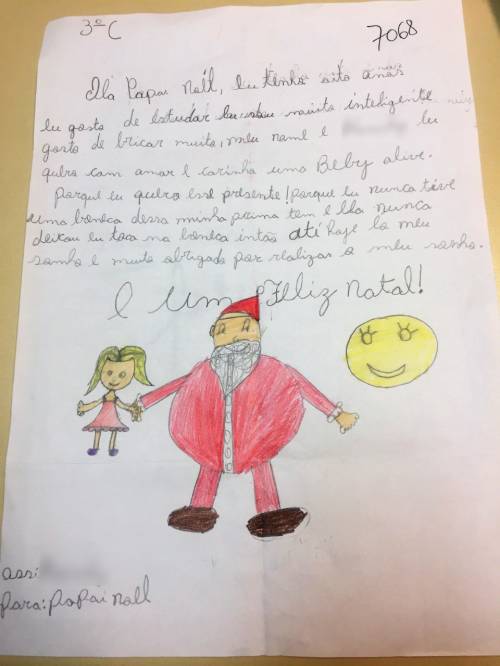 3º C
7068
Ola Papai noél, eu tenho oito anos
eu gosto de estudar eu sou muito inteligente
gosto de bricar muito, meu name e eu
quero com amor e carinho uma Beby alive.
Porque eu quero ese presente! porque eu nunca tive
uma boneca dessa minha prima tem e ela nunca
deixou eu toca na boneca intão até hoje lo meu
sonho e muito obrigado por realizar o meu sonho.
E um Feliz natal!
ass:
Para: Papai noell